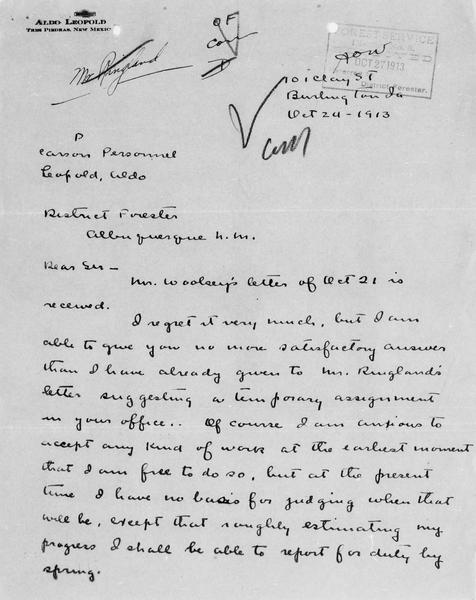 ALDO LEOPOLD
TRES PIEDRAS, NEW MEXICO
Mr Ringland
OF
FOREST SERVICE
OCT 27 1913
District Forester.
101 Clay St
Burlington Ia
Oct 24 - 1913
P
Carson Personnel
Leopold, Aldo
District Forester
Albuquerque N.M.
Dear Sir -
Mr. Woolsey's letter of Oct 21 is
received.
I regret it very much, but I am
able to give you no more satisfactory answer
than I have already given to Mr. Ringland's
letter suggesting a temporary assignment
in your office.. Of course I am anxious to
accept any kind of work at the earliest moment
that I am free to do so, but at the present
time I have no basis for judging when that
will be, except that roughly estimating my
progress I shall be able to report for duty by
spring.